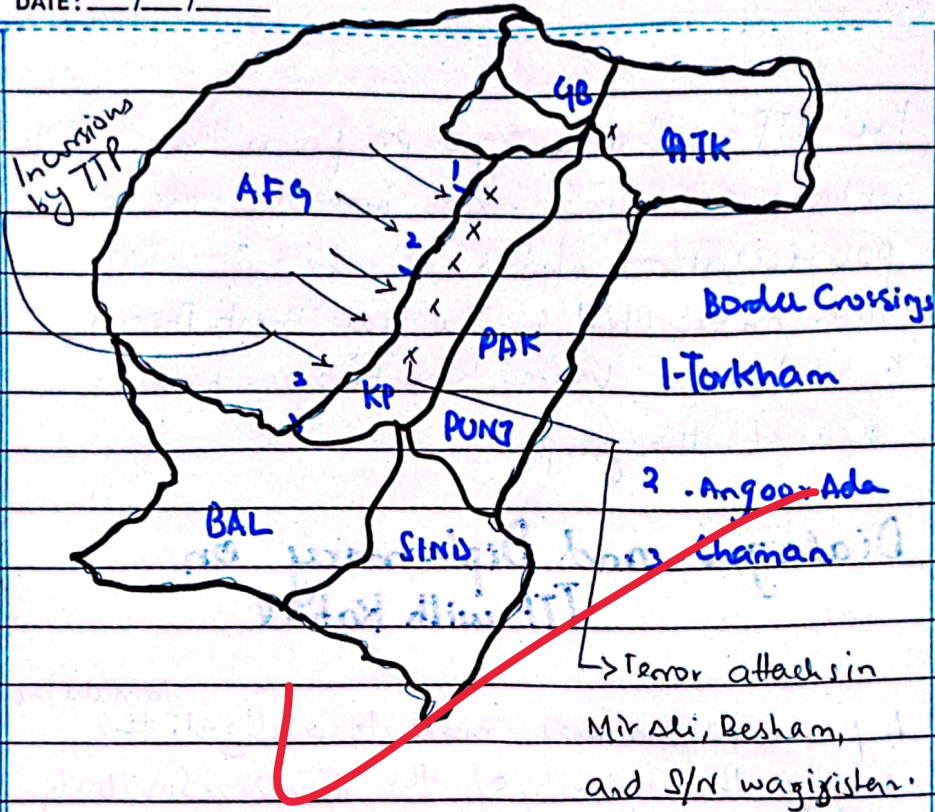 DATE: ___/___/______
Incursions
by TTP
GB
AJK
AFG
1
x
x
x
2
x
x
x
3
PAK
KP
PUNJ
BAL
SIND
Border Crossings
1-Torkham
2 - Angoor Ada
3 Chaman
→ Terror attacks in
Mir Ali, Besham,
and S/N waziristan.